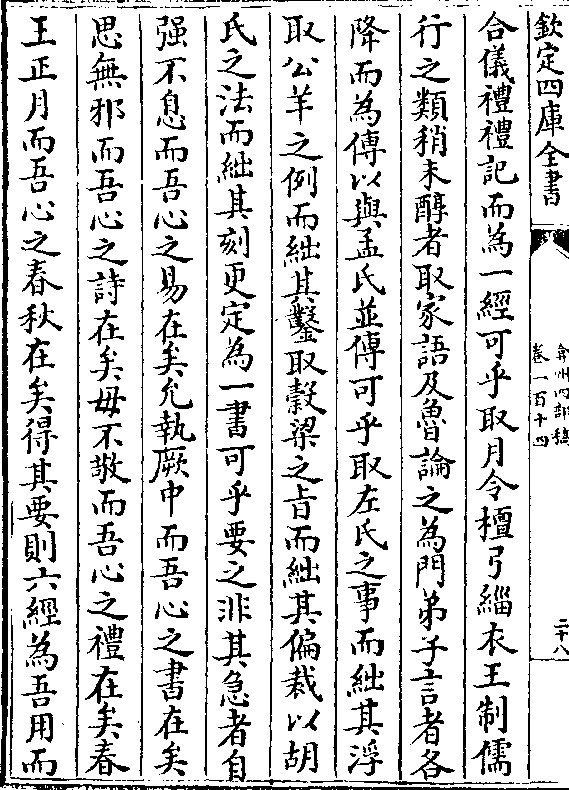 欽定四庫全書
弇州四部稿
卷一百十四
二十八
合儀禮禮記而為一經可乎取月令檀弓緇衣王制儒
行之類稍未醇者取家語及魯論之為門弟子言者各
降而為傳以與孟氏並傳可乎取左氏之事而絀其浮
取公羊之例而絀其鑿取穀梁之旨而絀其偏裁以胡
氏之法而絀其刻更定為一書可乎要之非其急者自
强不息而吾心之易在矣允執厥中而吾心之書在矣
思無邪而吾心之詩在矣毋不敬而吾心之禮在矣春
王正月而吾心之春秋在矣得其要則六經為吾用而